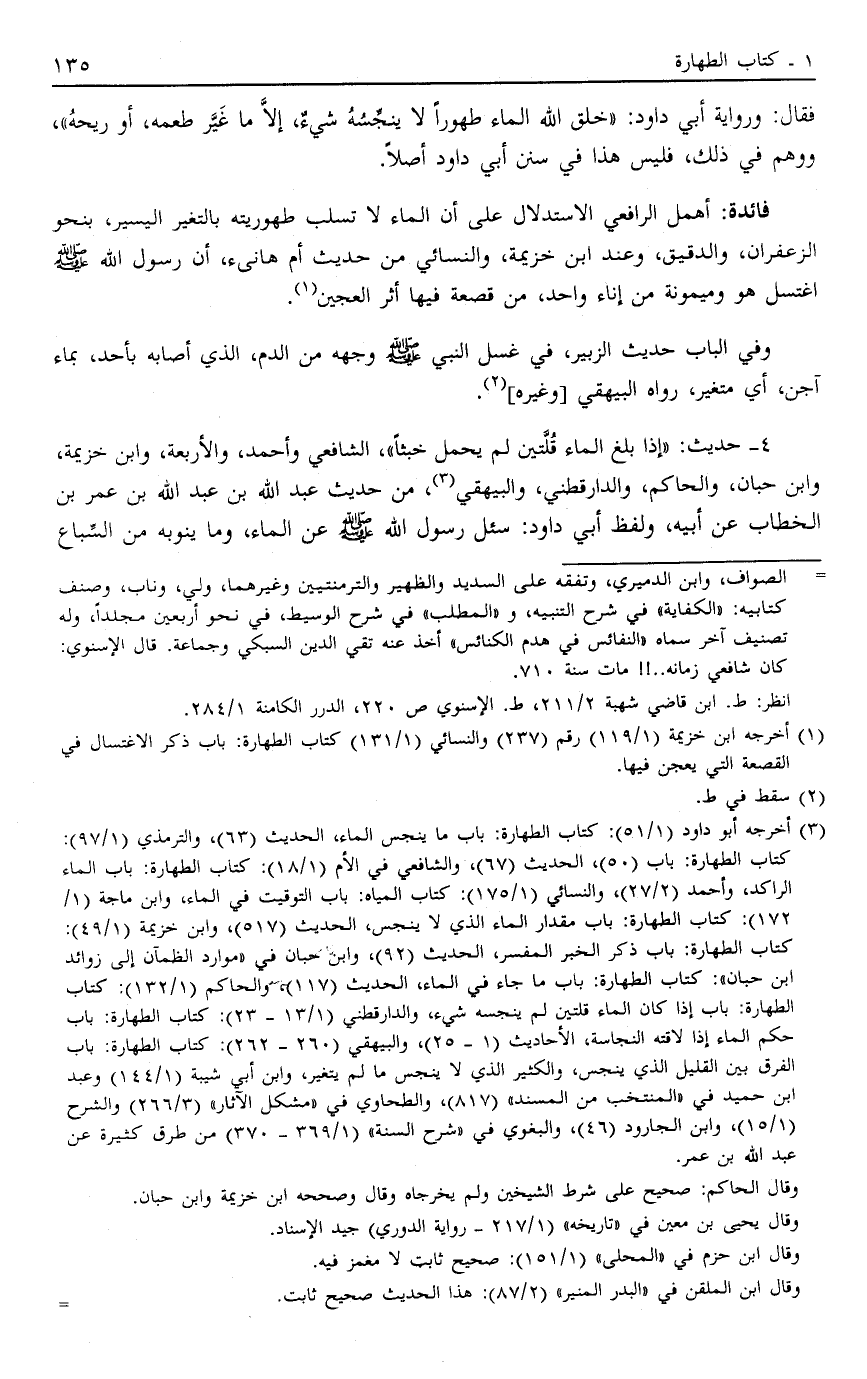 ١ ـ كتاب الطهارة ١٣٥
فقال: ورواية أبي داود: «خلق الله الماء طهوراً لا ينجِّسُهُ شيءٌ، إلاَّ ما غَيَّر طعمه، أو ريحهُ»،
ووهم في ذلك، فليس هذا في سنن أبي داود أصلاً.
فائدة: أهمل الرافعي الاستدلال على أن الماء لا تسلب طهوريته بالتغير اليسير، بنحو
الزعفران، والدقيق، وعند ابن خزيمة، والنسائي من حديث أم هانىء، أن رسول الله ﷺ
اغتسل هو وميمونة من إناء واحد، من قصعة فيها أثر العجين(١).
وفي الباب حديث الزبير، في غسل النبي ﷺ وجهه من الدم، الذي أصابه بأحد، بماء
آجن، أي متغير، رواه البيهقي [وغيره](٢).
٤ـ حديث: «إذا بلغ الماء قُلَّتين لم يحمل خبثاً»، الشافعي وأحمد، والأربعة، وابن خزيمة،
وابن حبان، والحاكم، والدارقطني، والبيهقي(٣)، من حديث عبد الله بن عبد الله بن عمر بن
الخطاب عن أبيه، ولفظ أبي داود: سئل رسول الله ﷺ عن الماء، وما ينوبه من السِّباع
= الصواف، وابن الدميري، وتفقه على السديد والظهير والترمنتيين وغيرهما، ولي، وناب، وصنف
كتابيه: «الكفاية» في شرح التنبيه، و «المطلب» في شرح الوسيط، في نحو أربعين مجلداً، وله
تصنيف آخر سماه «النفائس في هدم الكنائس» أخذ عنه تقي الدين السبكي وجماعة. قال الإسنوي:
كان شافعي زمانه..!! مات سنة ٧١٠.
انظر: ط. ابن قاضي شهبة ٢١١/٢، ط. الإسنوي ص ٢٢٠، الدرر الكامنة ٢٨٤/١.
(١) أخرجه ابن خزيمة (١١٩/١) رقم (٢٣٧) والنسائي (١٣١/١) كتاب الطهارة: باب ذكر الاغتسال في
القصعة التي يعجن فيها.
(٢) سقط في ط.
(٣) أخرجه أبو داود (٥١/١): كتاب الطهارة: باب ما ينجس الماء، الحديث (٦٣)، والترمذي (٩٧/١):
كتاب الطهارة: باب (٥٠)، الحديث (٦٧)، والشافعي في الأم (١٨/١): كتاب الطهارة: باب الماء
الراكد، وأحمد (٢٧/٢)، والنسائي (١٧٥/١): كتاب المياه: باب التوقيت في الماء، وابن ماجة (١/
١٧٢): كتاب الطهارة: باب مقدار الماء الذي لا ينجس، الحديث (٥١٧)، وابن خزيمة (٤٩/١):
كتاب الطهارة: باب ذكر الخبر المفسر، الحديث (٩٢)، وابن حبان في «موارد الظمآن إلى زوائد
ابن حبان»: كتاب الطهارة: باب ما جاء في الماء، الحديث (١١٧)، والحاكم (١٣٢/١): كتاب
الطهارة: باب إذا كان الماء قلتين لم ينجسه شيء، والدارقطني (١٣/١ - ٢٣): كتاب الطهارة: باب
حكم الماء إذا لاقته النجاسة، الأحاديث (١ - ٢٥)، والبيهقي (٢٦٠ - ٢٦٢): كتاب الطهارة: باب
الفرق بين القليل الذي ينجس، والكثير الذي لا ينجس ما لم يتغير، وابن أبي شيبة (١٤٤/١) وعبد
ابن حميد في «المنتخب من المسند» (٨١٧)، والطحاوي في «مشكل الآثار» (٢٦٦/٣) والشرح
(١٥/١)، وابن الجارود (٤٦)، والبغوي في «شرح السنة» (٣٦٩/١ - ٣٧٠) من طرق كثيرة عن
عبد الله بن عمر.
وقال الحاكم: صحيح على شرط الشيخين ولم يخرجاه وقال وصححه ابن خزيمة وابن حبان.
وقال يحيى بن معين في «تاريخه» (٢١٧/١ - رواية الدوري) جيد الإسناد.
وقال ابن حزم في «المحلى» (١٥١/١): صحيح ثابت لا مغمز فيه.
وقال ابن الملقن في «البدر المنير» (٨٧/٢): هذا الحديث صحيح ثابت. =